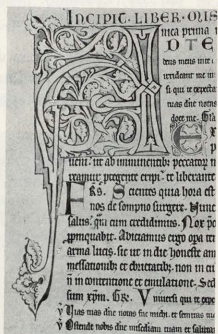 INCIPIT. LIBER. OMS
inica prima
D TE
deus meus in te
irrideant me in
si qui te expecta
uias tuas dne notas
doce me. Gla
p
ueni. ut ab imminentibus peccatorum n
reamur pregente eripi. te liberante
Frs. Scientes quia hora est
nos de sompno surgere. Nunc
salus. qui cum credidimus. Nox p
propinquabit. Abiciamus ergo opa te
arma lucis. sic ut in die honeste am
messationibus et ebrietatibus. non in cu
n in contentione et emulatione. Sed
sum xpm. Gr. Vniuersi qui te expe
Vias tuas dne notas fac michi. et semitas tuas
Ostende nobis dne misericordiam tuam et salutare